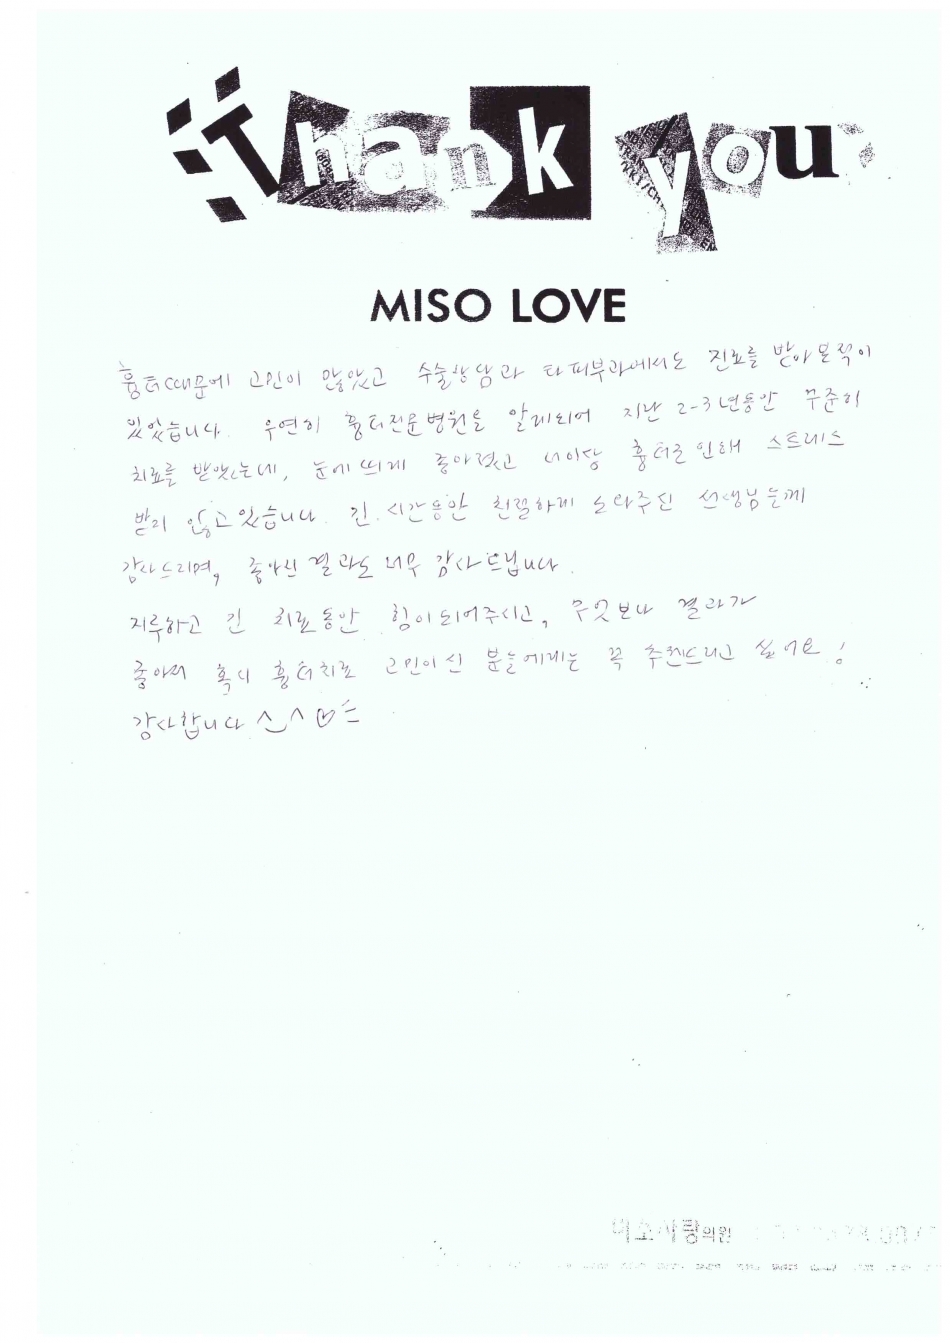 Thank you
MISO LOVE
흉터때문에 고민이 많았고 수술상담과 타피부과에서도 진료를 받아본적이
있었습니다. 우연히 흉터전문병원을 알게되어 지난 2-3년동안 꾸준히
치료를 받았는데, 눈에 띄게 좋아졌고 더이상 흉터로 인해 스트레스
받지 않고 있습니다. 긴 시간동안 친절하게 도와주신 선생님들께
감사드리며, 좋아진 결과도 너무 감사드립니다.
지루하고 긴 치료동안 힘이되어주시고, 무엇보다 결과가
좋아서 혹시 흉터치료 고민이신 분들에게는 꼭 추천드리고 싶어요!
감사합니다 ^_^ ♡
미소사랑의원